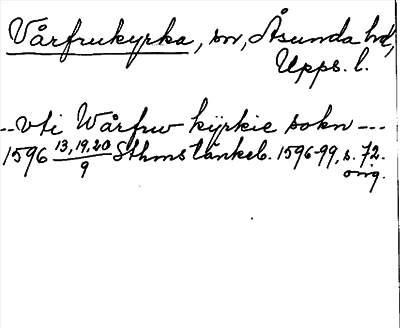 Vårfrukyrka, sn, Åsunda hd,
Upps. l.
--vti Wårfrw kÿrkie sokn ---
1596 13,19,20/9 Sthms tänkeb. 1596-99, s. 72.
orig.